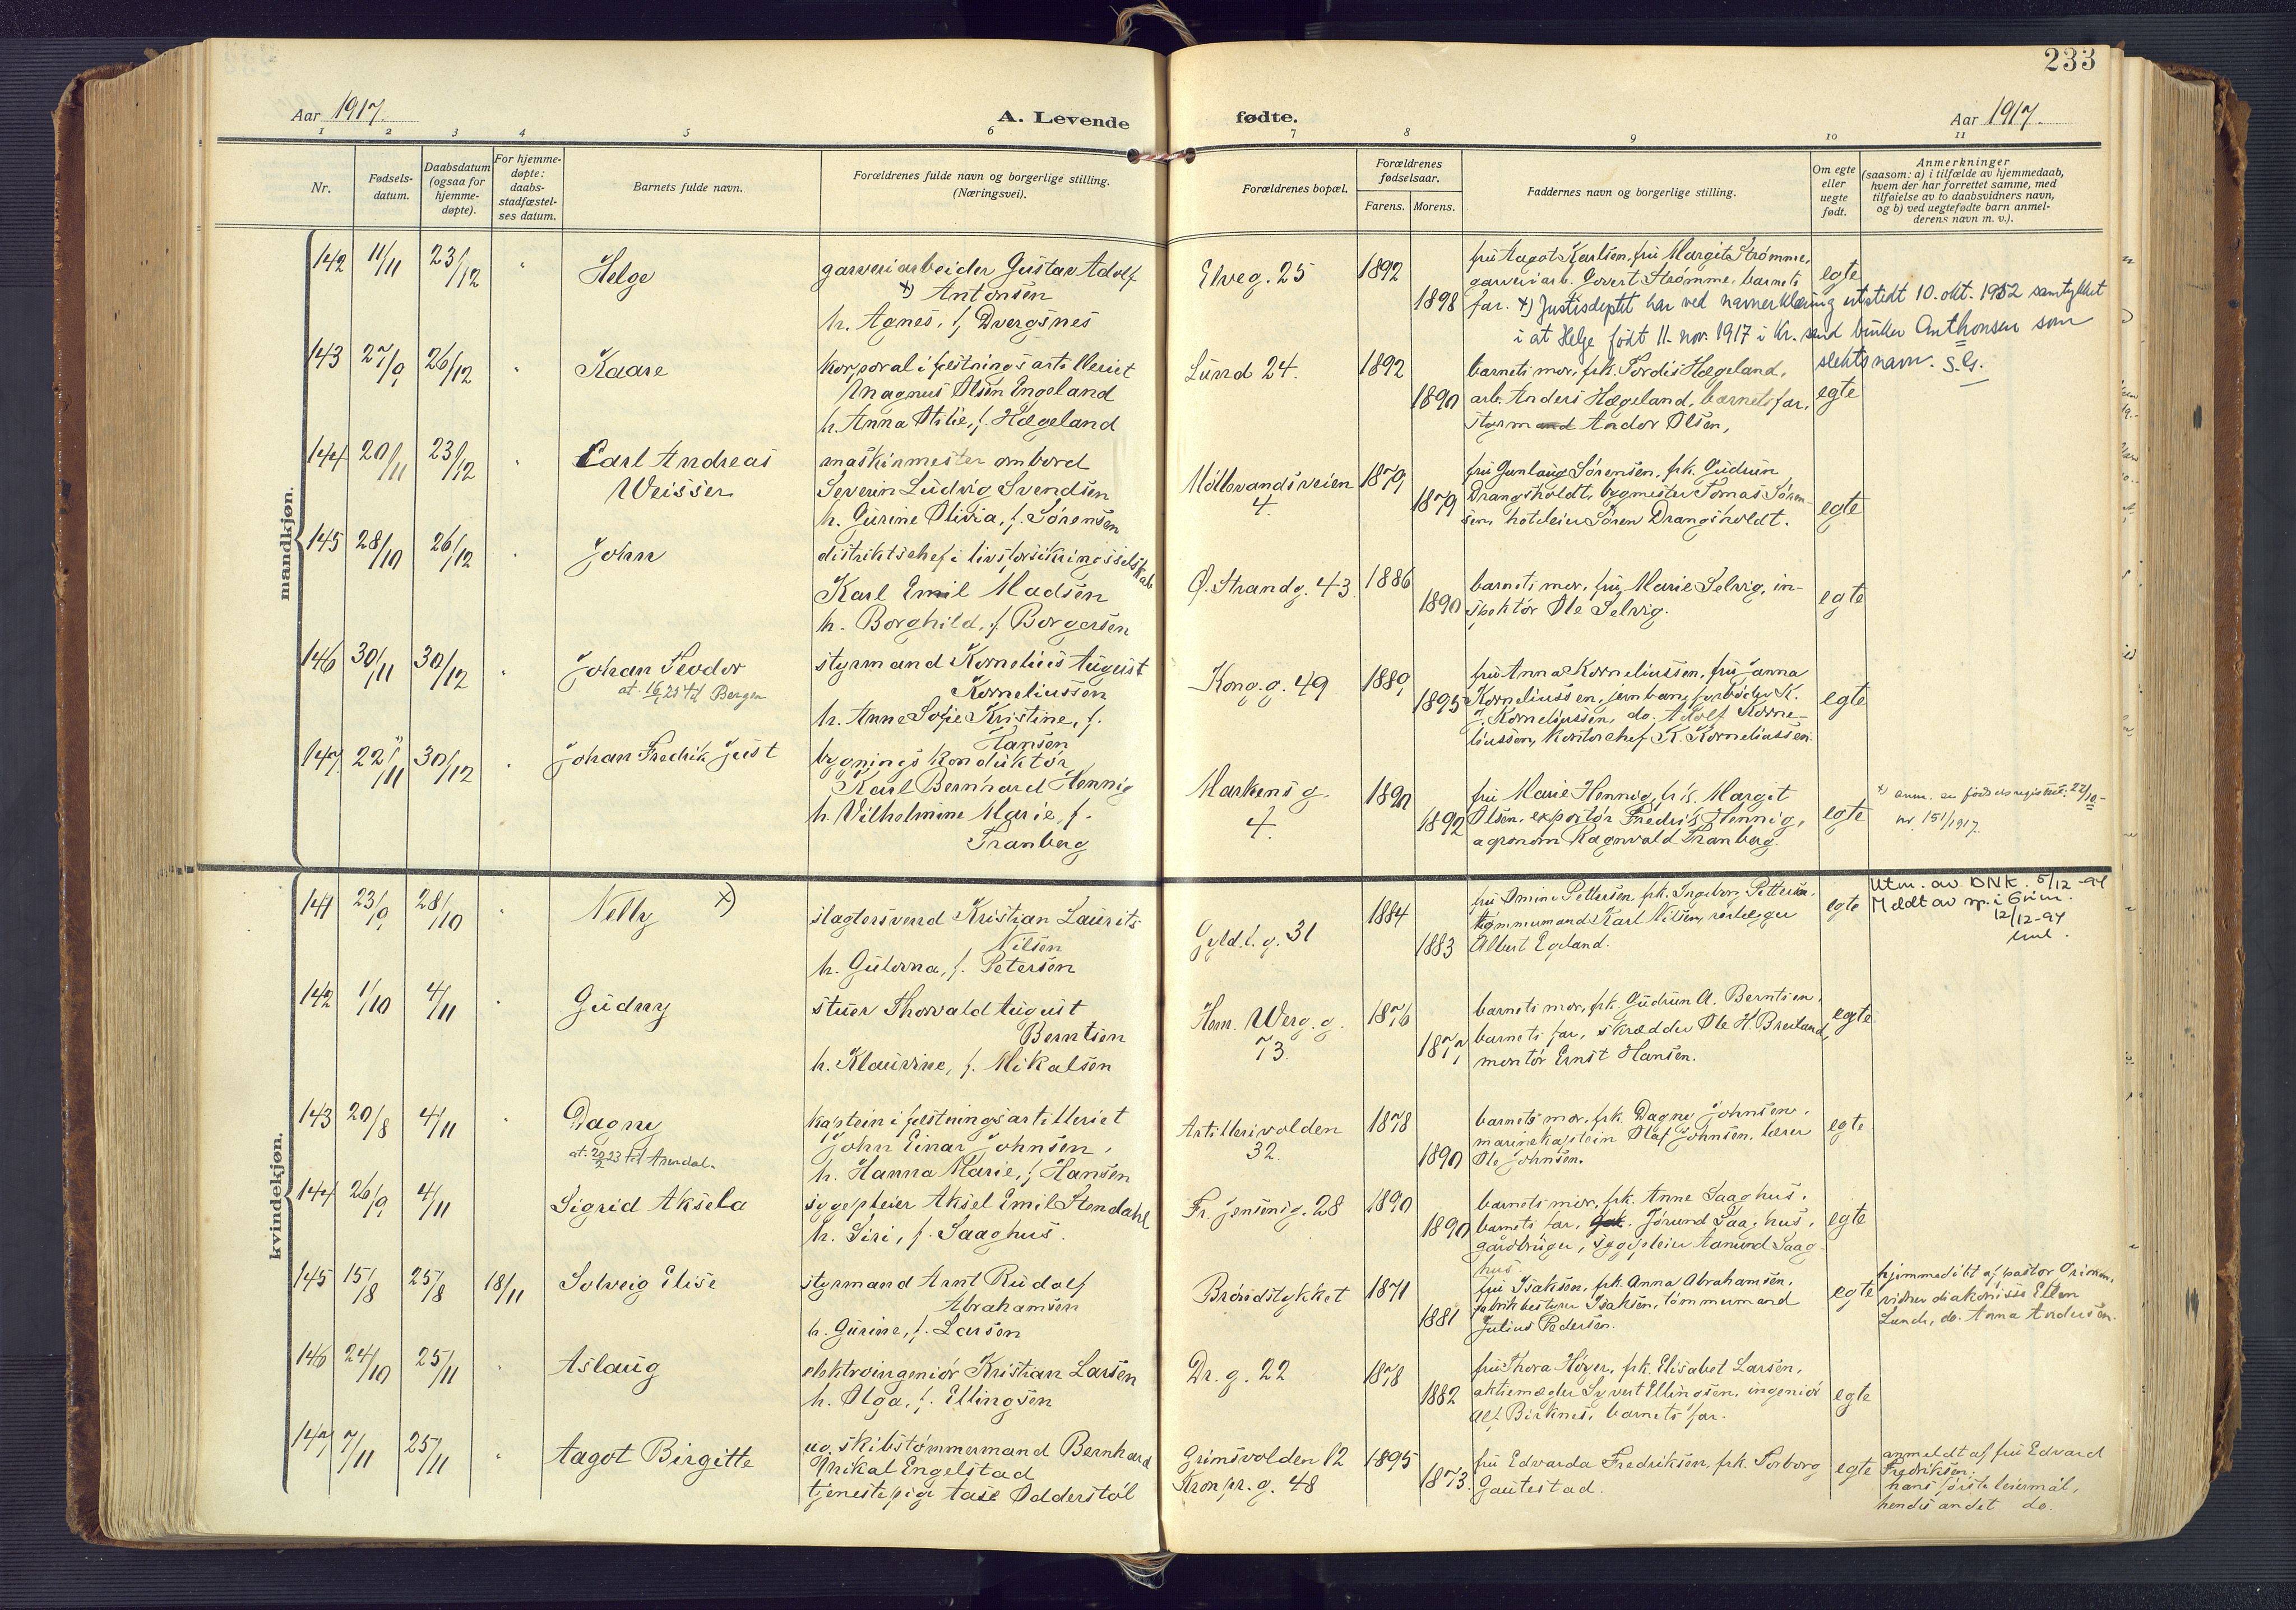 233
Aar 1917.
A. Levende
fødte.
Aar 1917.
1 2 3 4 5 6 7 8 9 10 11
Nr.
Fødsels-
datum.
Daabsdatum
(ogsaa for
hjemme-
døpte).
For hjemme-
døpte:
daabs-
stadfæstel-
ses datum.
Barnets fulde navn.
Forældrenes fulde navn og borgerlige stilling.
(Næringsvei).
Forældrenes bopæl.
Forældrenes
fødselsaar.
Farens. Morens.
Faddernes navn og borgerlige stilling.
Om egte
eller
uegte
født.
Anmerkninger
(saasom: a) i tilfælde av hjemmedaab,
hvem der har forrettet samme, med
tilføielse av to daabsvidners navn,
og b) ved uegtefødte barn anmel-
derens navn m. v.).
mandkjøn.
142 11/11 23/12 "
Helge
garveriarbeider Gustav Adolf
x) Antonsen
h. Agnes, f. Dvergsnes
Elveg. 25
1892
1898
fru Aagot Karlsen, fru Margit Strømme,
garveriarb. Govert Strømme, barnets
far.
egte
x) Justisdeptet har ved navnerklæring utstedt 10. okt. 1952 samtykket
i at Helge født 11. nov. 1917 i Kr.sand bruker Anthonsen som
slektsnavn. S.G.
143 27/9 26/12 "
Kaare
korporal i festningsartilleriet
Magnus Olsen Engeland
h. Anna Otilie, f. Hægeland
Lund 24.
1892
1890
barnets mor, frk. Tordis Hægeland,
arb. Anders Hægeland, barnets far,
styrmand Andor Olsen,
egte
144 20/11 23/12 "
Carl Andreas
Weisser
maskinmester ombord
Severin Ludvig Svendsen
h. Gurine Olivia, f. Sørensen
Møllevandsveien
4.
1879
1879
fru Gunlaug Sørensen, frk. Gudrun
Drangsholdt, bygmester Tomas Søren-
sen, hoteleier Søren Drangsholdt.
egte
145 28/10 26/12 "
John
distriktschef i livsforsikringsselskab
Karl Emil Madsen
h. Borghild, f. Borgersen
Ø. Strandg. 43
1886
1890
barnets mor, fru Marie Selvig, in-
spektør Ole Selvig.
egte
146 30/11 30/12 "
Johan Teodor
at. 16/ 25 til Bergen
styrmand Kornelius August
Korneliussen
h. Anne Sofie Kristine, f.
Hansen
Kong. g. 49
1889
1895
fru Anna Korneliussen, fru Janna
Korneliussen, K.
Korneliussen, do. Adolf Korne-
liussen, kontorchef K. Korneliussen.
egte
147 22/11 30/12 "
Johan Fredrik Just
bygningskonduktør
Karl Bernhard Hennig
h. Vilhelmine Marie, f.
Tranberg
Markens g.
4.
1890
1892
fru Marie Hennig, frk. Margit
Olsen, exportør Fredrik Hennig,
agronom Ragnvald Tranberg
egte
x) anm. se fødselsregistret 22/10-
nr. 151/1917.
kvindekjøn.
141 23/9 28/10 "
Nelly x)
slagtersvend Kristian Laurits
Nilsen
h. Gulovna, f. Petersen
Gyld.l. g. 31
1884
1883
fru Omine Pettersen, frk. Ingeborg Pettersen,
tømmermand Karl Nilsen, rørlægger
Albert Egeland.
egte
Utm. av DNK. 5/12-94
Meldt av sp. i Grim.
12/12-94
142 1/10 4/11 "
Gudny
stuer Thorvald August
Berntsen
h. Klaurine, f. Mikalsen
Henr. Werg. g.
73.
1876
1877
barnets mor, frk. Gudrun A. Berntsen,
barnets far, skrædder Ole H. Breiland,
montør Ernst Hansen.
egte
143 20/8 4/11 "
Dagny
at. 20/2 23 til Arendal.
kaptein i festningsartilleriet
John Einar Johnsen,
h. Hanna Marie, f. Hansen
Artillerivolden
32.
1878
1890
barnets mor, frk. Dagny Johnsen,
marinekaptein Olaf Johnsen, lærer
Ole Johnsen.
egte
144 26/9 4/11
Sigrid Aksela
sygepleier Aksel Emil Stendahl
h. Siri, f. Saaghus.
Fr. Jensensg. 28
1890
1890
barnets mor, frk. Anne Saaghus,
barnets far, Jørund Saaghus,
gårdbruger, sygepleier Aamund Saag-
hus.
egte
145 15/8 25/8 18/11
Solveig Elise
styrmand Arnt Rudolf
Abrahamsen
h. Gurine, f. Larsen
Brøndstykket
1871
1881
fru Isaksen, frk. Anna Abrahamsen,
fabrikbestyrer Isaksen, tømmermand
Julius Pedersen.
egte
hjemmedøbt af pastor
vidner diakonisse Ellen
Lunde, do. Anna Andersen.
146 24/10 25/11 "
Aslaug
elektroingeniør Kristian Larsen
h. Olga, f. Ellingsen
Dr. g. 22
1878
1882
fru Thora Høyer, frk. Elisabet Larsen,
aktiemægler Syvert Ellingsen, ingeniør
Alf Birknes, barnets far.
egte
147 7/11 25/11 "
Aagot Birgitte
ug. skibstømmermand Bernhard
Mikal Engelstad
tjenestepige Aase Odderstøl
Grimsvolden 12
Kronpr. g. 48
1895
1873.
fru Edvarda Fredriksen, frk. Torborg
Gautestad.
egte
anmeldt af fru Edvard
Fredriksen.
hans første leiermål,
hendes andet do.